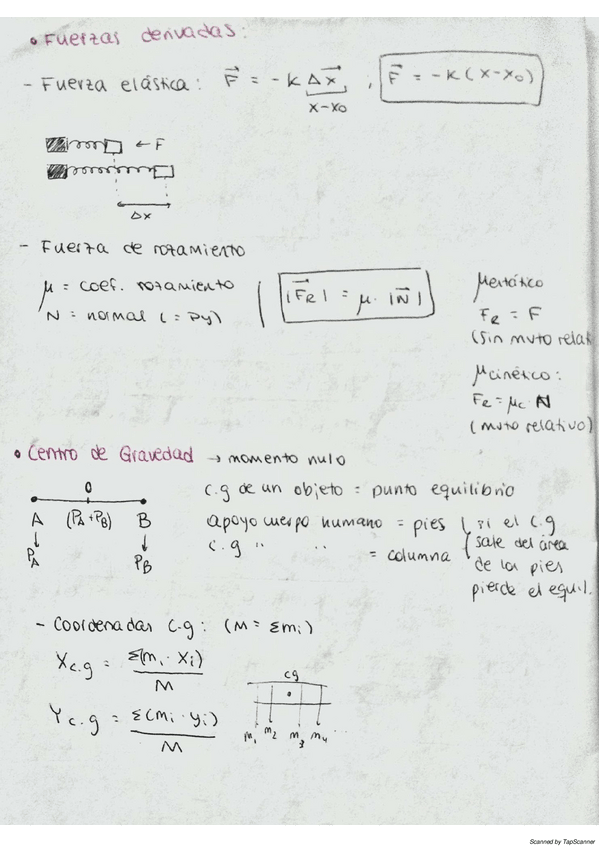 • Fuerzas derivadas:
- Fuerza elástica: F⃗ = -K Δx⃗ , F⃗ = -K (x-x₀)
x-x₀
← F
Δx
- Fuerza de rozamiento
μ = coef. rozamiento
N = normal (= Py)
|F⃗R| = μ · |N⃗|
μestático
FR = F
(sin mvto relat
μcinético:
FR = μc · N
(mvto relativo)
• Centro de Gravedad → momento nulo
O
A (PA+PB) B
PA PB
c.g de un objeto = punto equilibrio
apoyo cuerpo humano = pies
c.g " " = columna
si el c.g
sale del área
de los pies
pierde el equil.
- Coordenadas c.g: (M = Σmi)
Xc.g = Σ(mi · xi)
M
Yc.g = Σ(mi · yi)
M
cg
m₁ m₂ m₃ m₄ ...
Scanned by TapScanner